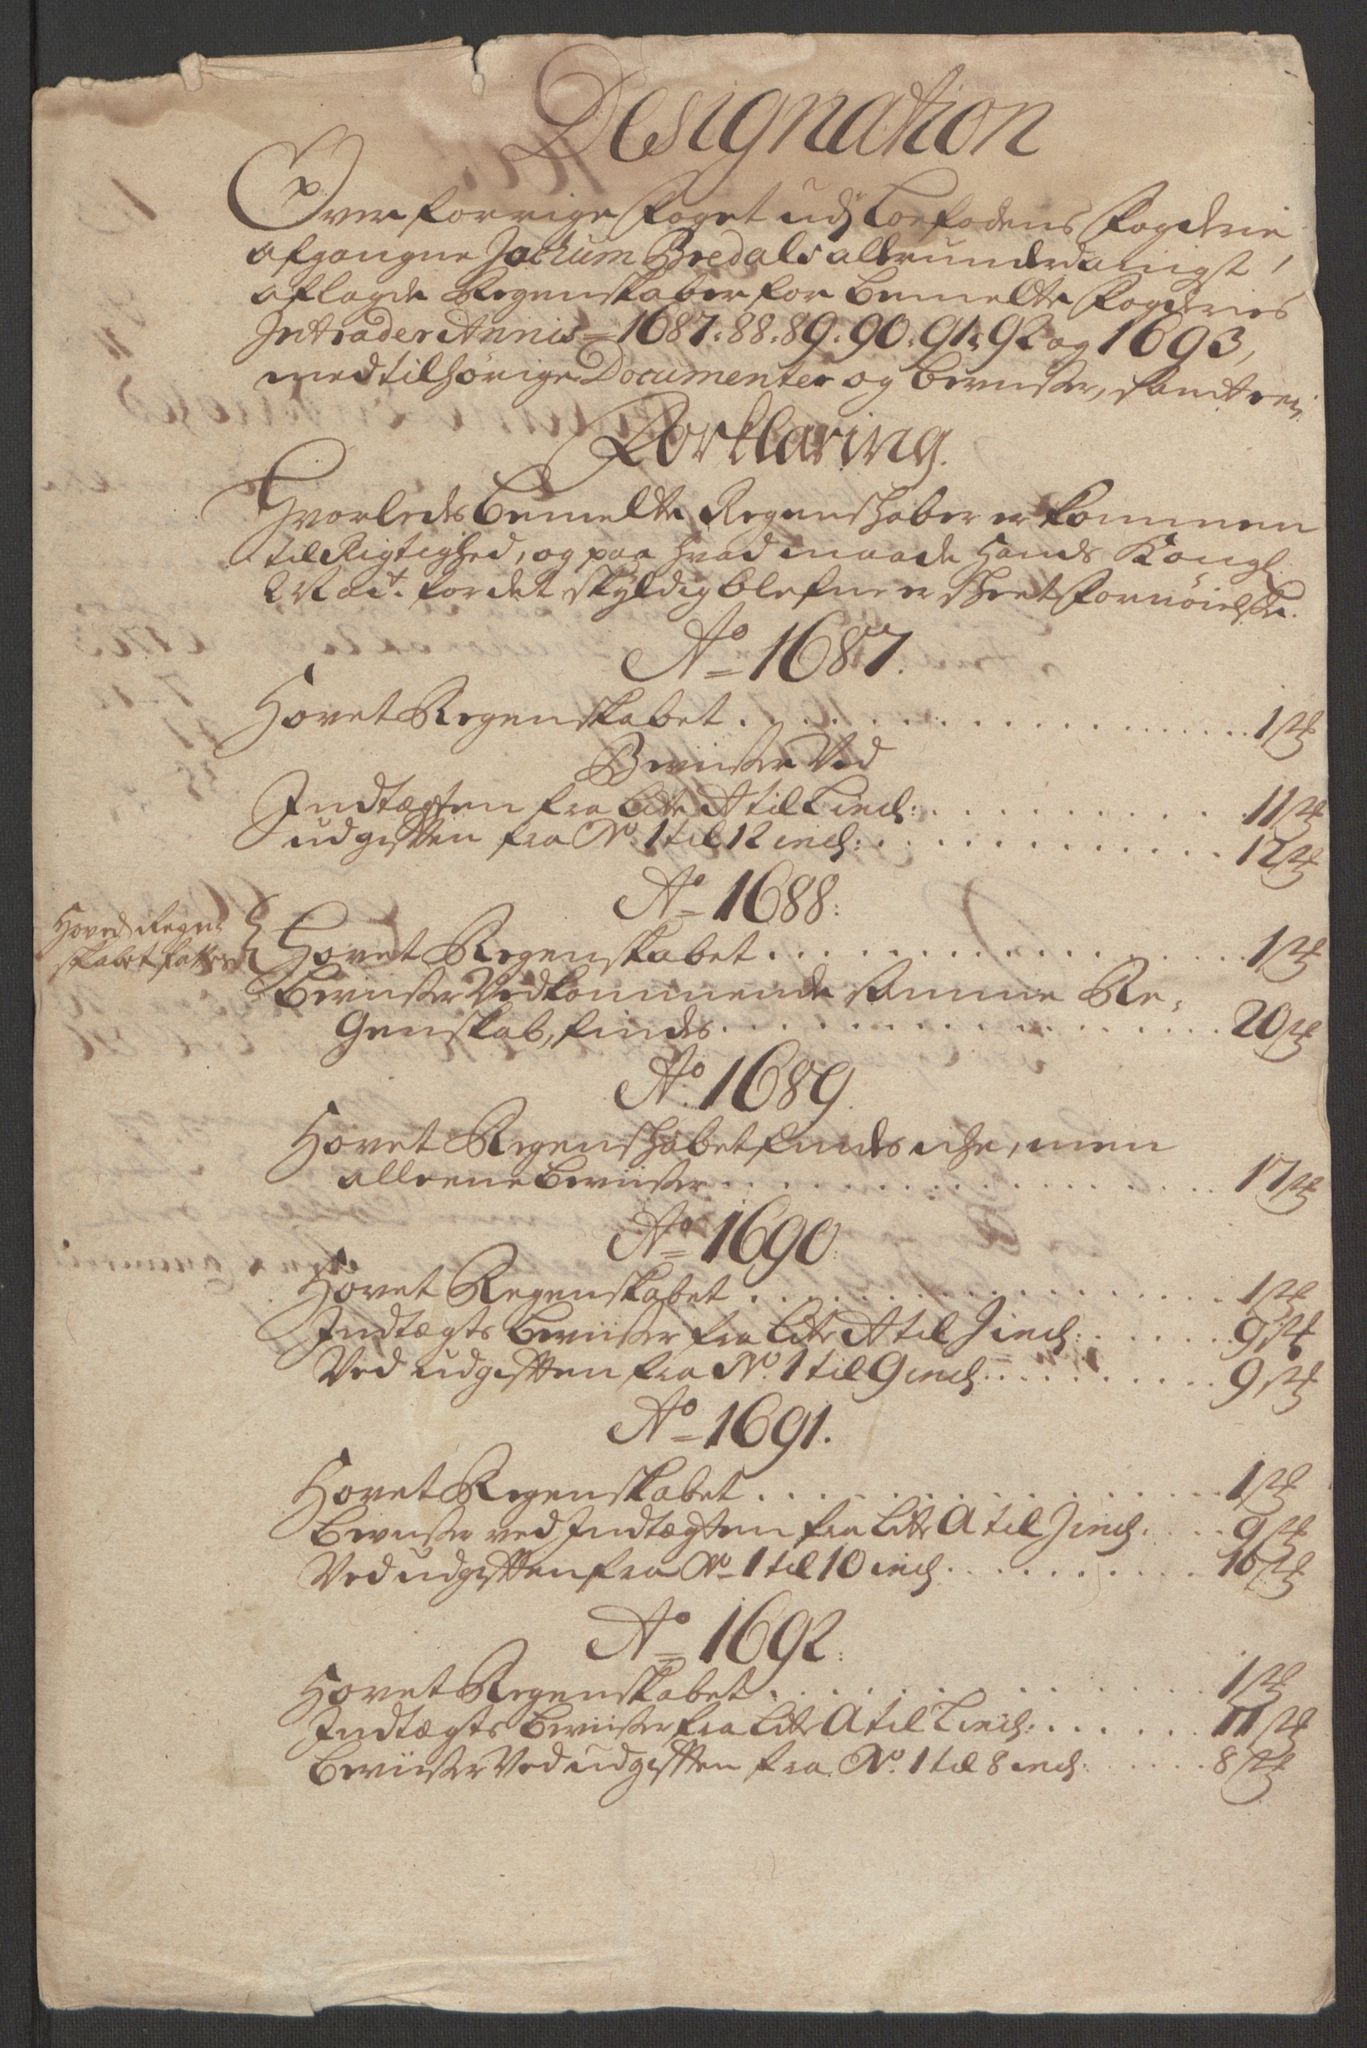 Designation
Over forrige Foget udj Loefodens Fogderie
afgangne Jochum Bredals allerunderdanigst
aflagde Regenskaber for bemelte Fogderies
Intrader Annis = 1687: 88: 89: 90: 91: 92 og 1693,
med tilhörige Documenter og beviiser, samt en
Forklaring.
Hvorledes bemelte Regenschaber er kommen
til Rigtighed, og paa hvad maade Hands Kongl
Maÿt. for det skÿldig blefne er skeet fornöielse.
Ao 1687.
Hovet Regenskabet . . . 1 st
Beviiser Ved
Indtægten fra Litr A til L incl: . . . 11 st
udgifften fra No 1 til 12 incl: . . . 12 st
Ao 1688:
Hoved Regen
skabet fattes
Hovet Regenskabet . . . 1 st
Beviiser Vedkommende samme Re-
genskab, findes . . . 20 st
Ao 1689.
Hovet Regenschabet findes iche, men
alleene beviiser . . . 17 st
Ao 1690:
Hovet Regenskabet . . . 1 st
Indtægts beviiser fra Litr A til J incl: . . . 9 st
Ved udgifften fra No. 1 til 9 incl: . . . 9 st
Ao 1691.
Hovet Regenskabet . . . 1 st
beviiser ved Indtægten fra Litr A til J incl: . . . 9 st
Ved udgifften fra No 1 til 10 incl. . . . 10 st
Ao 1692:
Hovet Regenskabet . . . 1 st
Indtægts beviiser fra Litr A til L incl: . . . 11 st
beviiser Ved udgifften fra No. 1 til 8 incl: . . . 8 st